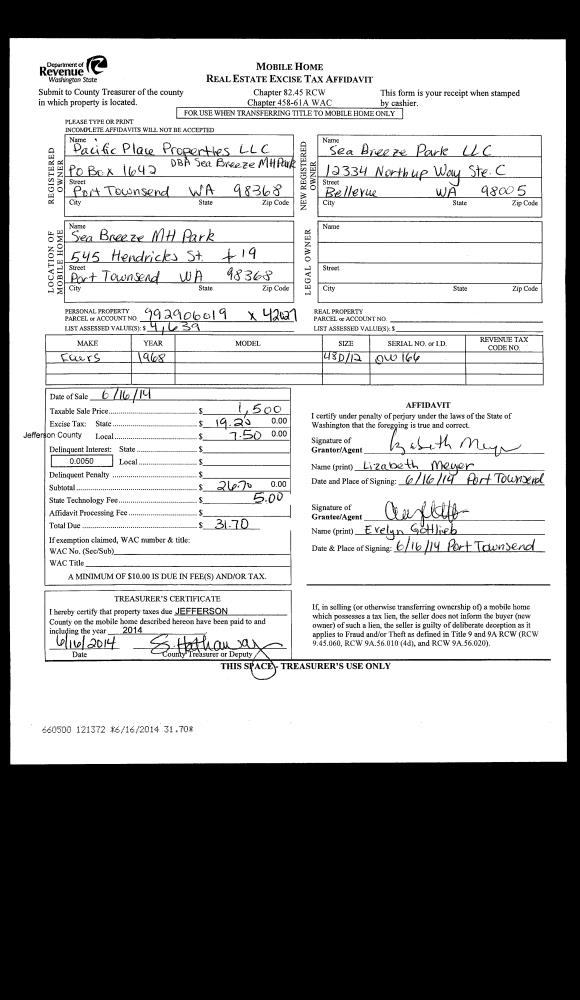 Department of
Revenue
Washington State
MOBILE HOME
REAL ESTATE EXCISE TAX AFFIDAVIT
Submit to County Treasurer of the county
in which property is located.
Chapter 82.45 RCW
Chapter 458-61A WAC
This form is your receipt when stamped
by cashier.
FOR USE WHEN TRANSFERRING TITLE TO MOBILE HOME ONLY
PLEASE TYPE OR PRINT
INCOMPLETE AFFIDAVITS WILL NOT BE ACCEPTED
REGISTERED OWNER
Name
Pacific Place Properties LLC
DBA Sea Breeze MH Park
PO Box 1642
Street
Port Townsend WA 98368
City State Zip Code
NEW REGISTERED OWNER
Name
Sea Breeze Park LLC
12334 Northup Way Ste. C
Street
Bellevue WA 98005
City State Zip Code
LOCATION OF MOBILE HOME
Name
Sea Breeze MH Park
545 Hendricks St. #19
Street
Port Townsend WA 98368
City State Zip Code
LEGAL OWNER
Name
Street
City State Zip Code
PERSONAL PROPERTY
PARCEL or ACCOUNT NO. 992906019 x 42027
LIST ASSESSED VALUE(S): $ 4,639
REAL PROPERTY
PARCEL or ACCOUNT NO.
LIST ASSESSED VALUE(S): $
MAKE YEAR MODEL SIZE SERIAL NO. or I.D. REVENUE TAX CODE NO.
1968 48D/12 OW166
Date of Sale 6/16/14
Taxable Sale Price $ 1,500
Excise Tax: State $ 19.20 0.00
Jefferson County Local $ 7.50 0.00
Delinquent Interest: State $
0.0050 Local $
Delinquent Penalty $
Subtotal $ 26.70 0.00
State Technology Fee $ 5.00
Affidavit Processing Fee $
Total Due $ 31.70
If exemption claimed, WAC number & title:
WAC No. (Sec/Sub)
WAC Title
A MINIMUM OF $10.00 IS DUE IN FEE(S) AND/OR TAX.
AFFIDAVIT
I certify under penalty of perjury under the laws of the State of
Washington that the foregoing is true and correct.
Signature of
Grantor/Agent
Name (print) Lizabeth Meyer
Date and Place of Signing: 6/16/14 Port Townsend
Signature of
Grantee/Agent
Name (print) Evelyn Gottlieb
Date & Place of Signing: 6/16/14 Port Townsend
TREASURER'S CERTIFICATE
I hereby certify that property taxes due JEFFERSON
County on the mobile home described hereon have been paid to and
including the year 2014
6/16/2014
Date County Treasurer or Deputy
If, in selling (or otherwise transferring ownership of) a mobile home
which possesses a tax lien, the seller does not inform the buyer (new
owner) of such a lien, the seller is guilty of deliberate deception as it
applies to Fraud and/or Theft as defined in Title 9 and 9A RCW (RCW
9.45.060, RCW 9A.56.010 (4d), and RCW 9A.56.020).
THIS SPACE - TREASURER'S USE ONLY
660500 121372 *6/16/2014 31.70*